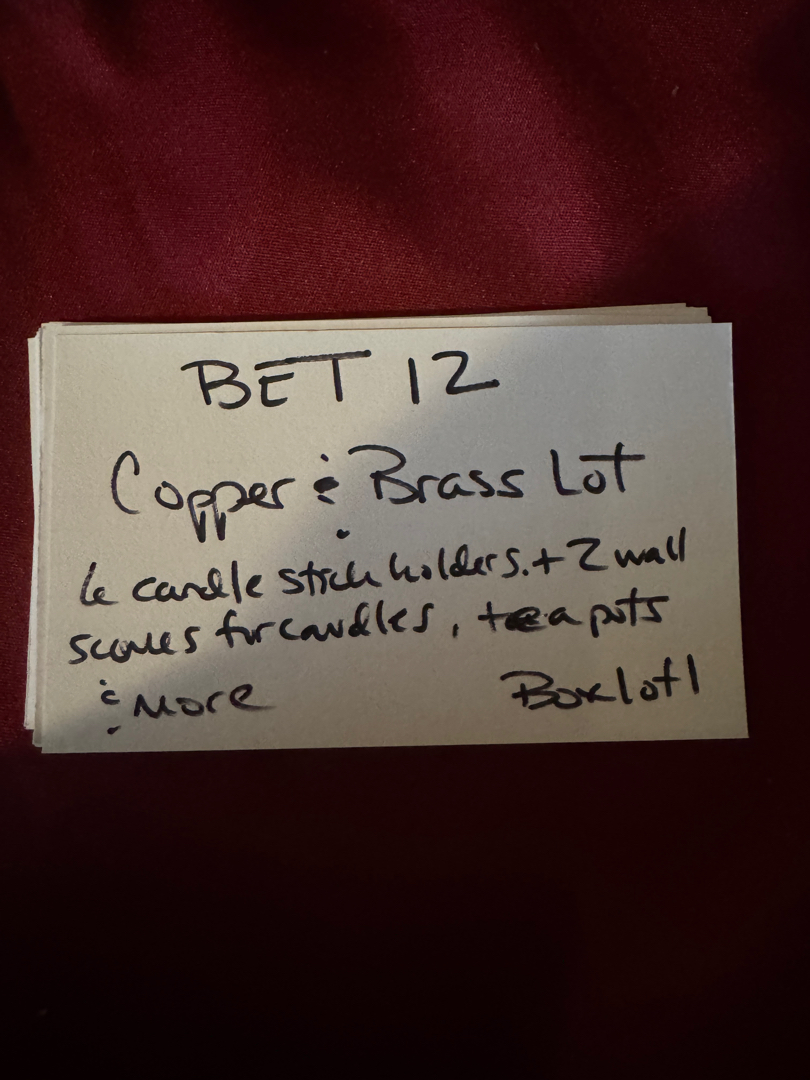 BET 12
Copper & Brass Lot
6 candle stick holders. + 2 wall
sconces for candles, teapots
& More Box lot 1